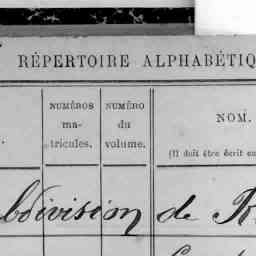 RÉPERTOIRE ALPHABÉTIQ
NUMÉROS
ma-
tricules.
NUMÉRO
du
volume.
NOM.
(Il doit être écrit en
bdivision de R